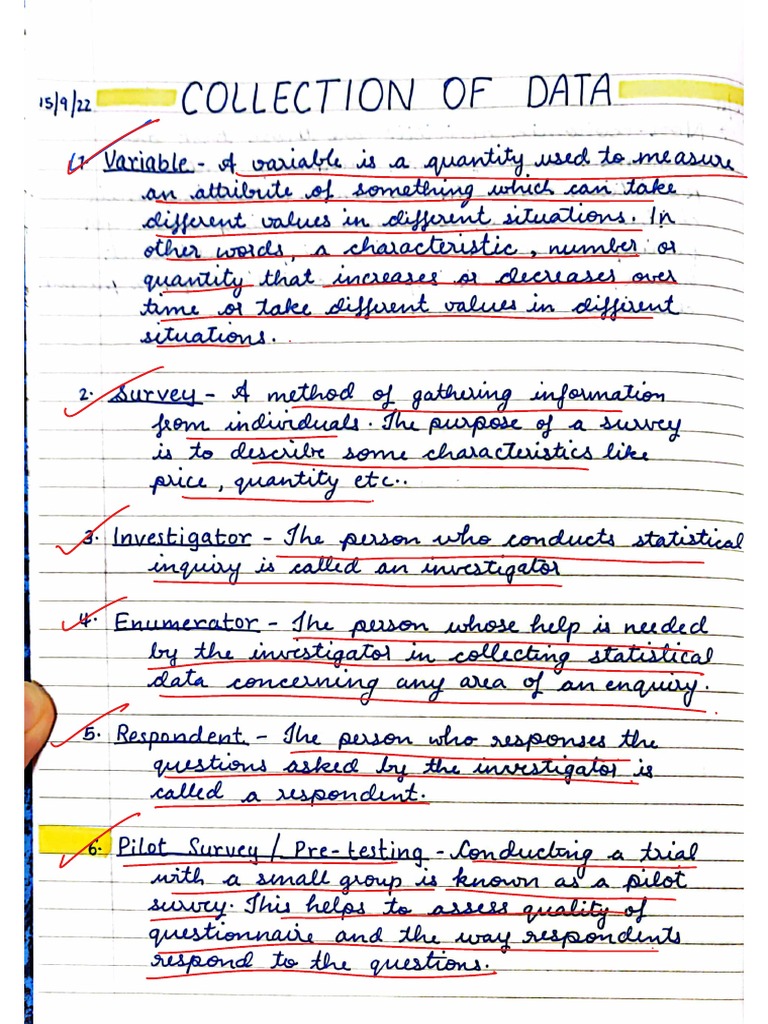 15/9/22 COLLECTION OF DATA
1. Variable - A variable is a quantity used to measure
an attribute of something which can take
different values in different situations. In
other words, a characteristic, number or
quantity that increases or decreases over
time or take different values in diffirent
situations.
2. Survey - A method of gathering information
from individuals. The purpose of a survey
is to describe some characteristics like
price, quantity etc..
3. Investigator - The person who conducts statistical
inquiry is called an investigator
4. Enumerator - The person whose help is needed
by the investigator in collecting statistical
data concerning any area of an enquiry.
5. Respondent - The person who responses the
questions asked by the investigator is
called a respondent.
6. Pilot Survey / Pre-testing - Conducting a trial
with a small group is known as a pilot
survey. This helps to assess quality of
questionnaire and the way respondents
respond to the questions.